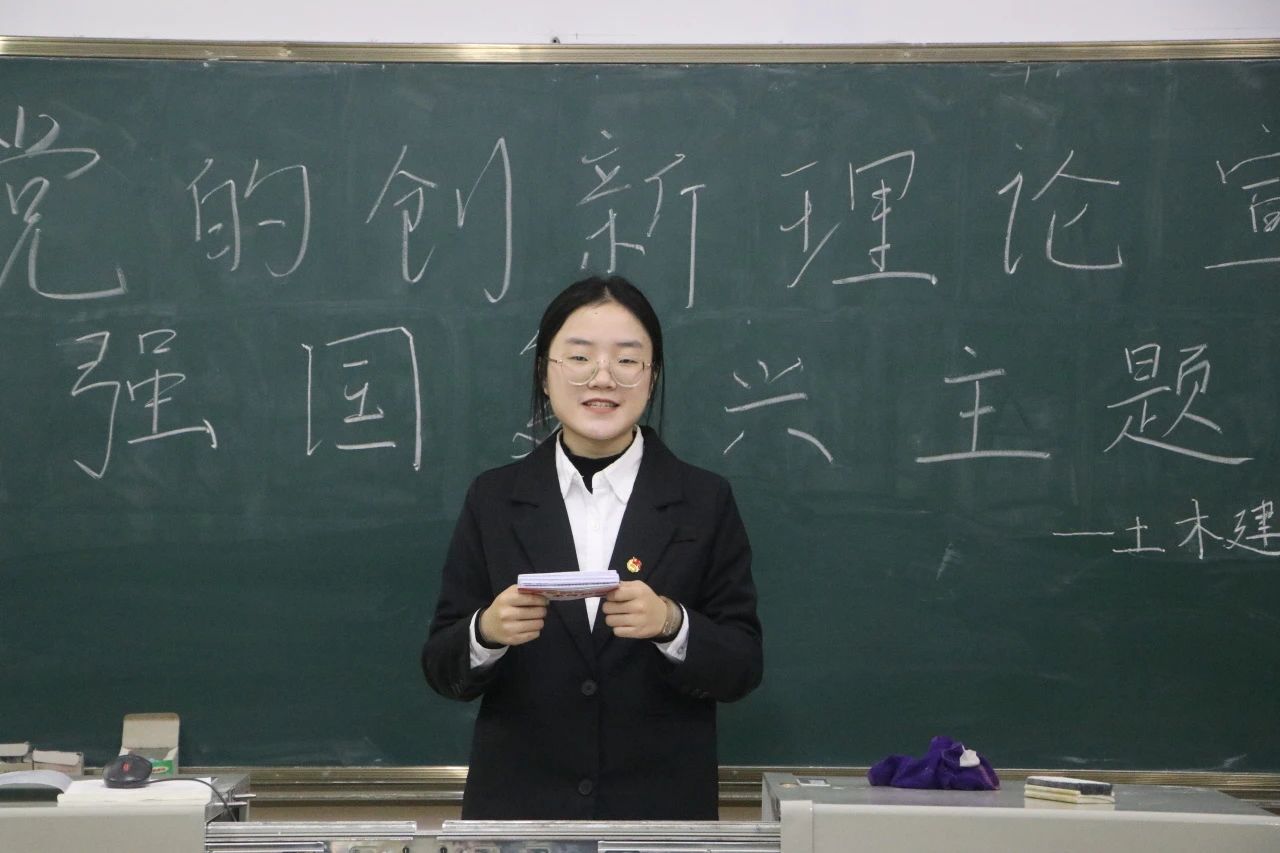 党的创新理论宣
强国 兴主题
一土木建